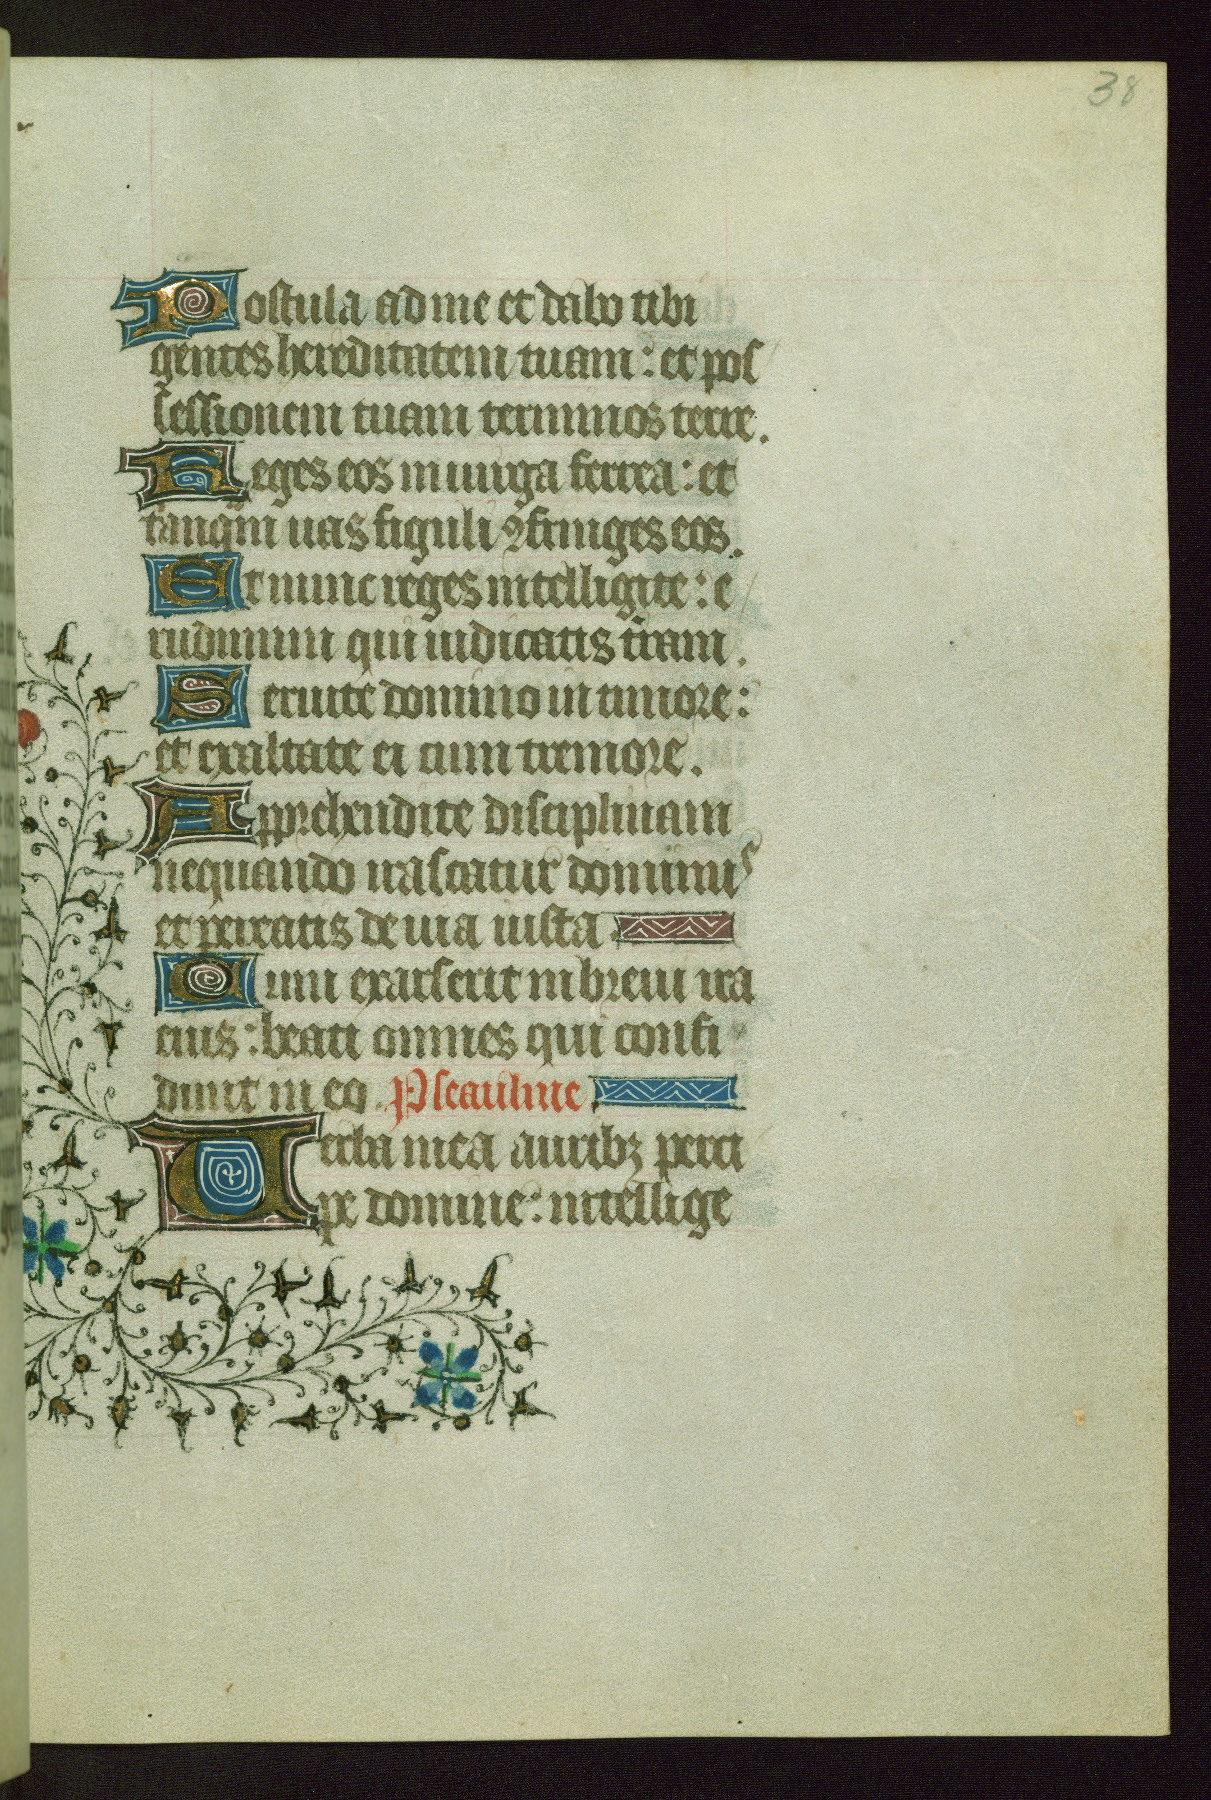 38
Postula ad me et dabo tibi
gentes hereditatem tuam : et pos
sessionem tuam terminos terre .
Reges eos in uirga ferrea : et
tanq̄m uas figuli ꝯfringes eos .
Et nunc reges intelligite : e
rudimini qui iudicatis tr̄am .
Seruite domino in timore :
et exaltate ei cum tremore .
Apprehendite disciplinam
nequando irascatur dominus
et pereatis de uia iusta
Cum exarserit in breui ira
eius : beati omnes qui confi
dunt in eo . Pseaulme
Uerba mea auribꝫ perci
pe domine : intellige